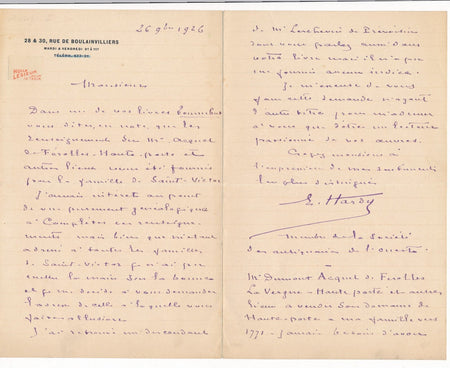 26 9bre 1926
28 & 30, RUE DE BOULAINVILLIERS
MARDI & VENDREDI
TÉLÉPH.
Monsieur
Dans un de vos livres
vous dites, en note, que les
renseignements sur Mr Acquet
de Ferolles - Haute-porte et
autres lieux vous ont été fournis
par la famille de Saint-Victor
J'aurais intérêt au point
de vue purement généalogique
à compléter ces renseigne-
ments mais bien que m'étant
adressé à toutes les familles
de Saint-Victor je n'ai pu
mettre la main sur la bonne
et je me décide à vous demander
l'adresse de celle à laquelle vous
faites allusion
J'ai retrouvé un descendant
de Mr
dont vous parlez aussi dans
votre livre mais il n'a pu
me fournir aucun indice.
Je m'excuse de vous
faire cette demande n'ayant
d'autre titre pour m'adresser
à vous que d'être un lecteur
passionné de vos œuvres.
Croyez monsieur à
l'expression de mes sentiments
les plus distingués
E. Hardy
Membre de la Société
des antiquaires de l'Ouest
Mr Dumont Acquet de Ferolles
La Vergne - Haute porte et autres
lieux a vendu son domaine de
Haute-porte à ma famille vers
1771 - J'aurais besoin d'avoir